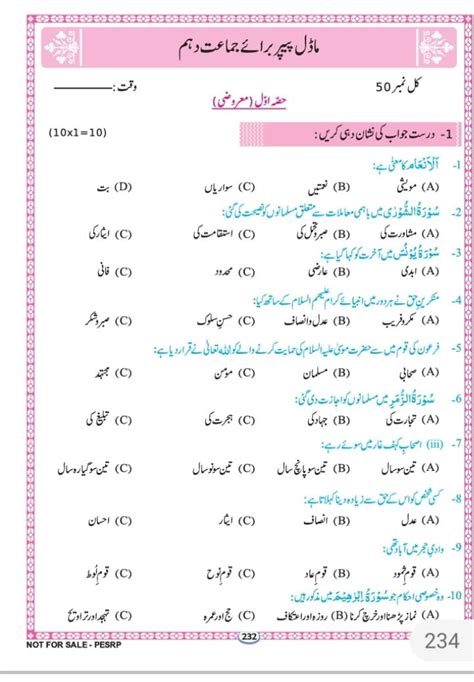 ماڈل پیپر برائے جماعت دہم
کل نمبر 50 وقت: ________
حصّہ اوّل (معروضی)
1- درست جواب کی نشان دہی کریں: (10x1=10)
1- اَلْاَنْعَام کا معنیٰ ہے:
(A) مویشی (B) نعتیں (C) سواریاں (D) بت
2- سُوْرَةُ الشُّوْرٰی میں باہمی معاملات سے متعلق مسلمانوں کو نصیحت کی گئی:
(A) مشاورت کی (B) صبر و تحمل کی (C) استقامت کی (C) ایثار کی
3- سُوْرَةُ يُوْنُس میں آخرت کو کہا گیا ہے:
(A) ابدی (B) عارضی (C) محدود (C) فانی
4- منکرینِ حق نے ہر دور میں انبیائے کرام علیہم السلام کے ساتھ کیا:
(A) مکر و فریب (B) عدل و انصاف (C) حسنِ سلوک (C) صبر و شکر
5- فرعون کی قوم میں سے حضرت موسیٰ علیہ السلام کی حمایت کرنے والے کو اللہ تعالیٰ نے قرار دیا ہے:
(A) صحابی (B) مسلمان (C) مومن (C) مجتہد
6- سُوْرَةُ الزُّمَر میں مسلمانوں کو اجازت دی گئی:
(A) تجارت کی (B) جہاد کی (C) ہجرت کی (C) تبلیغ کی
7- (iii) اصحابِ کہف غار میں سوئے رہے:
(A) تین سو سال (B) تین سو پانچ سال (C) تین سو نو سال (C) تین سو گیارہ سال
8- کسی شخص کو اس کے حق سے زیادہ دینا کہلاتا ہے:
(A) عدل (B) انصاف (C) ایثار (C) احسان
9- وادیِ حجر میں آباد تھی:
(A) قومِ ثمود (B) قومِ عاد (C) قومِ نوح (C) قومِ لُوط
10- وہ خصوصی احکام جو سُوْرَةُ اِبْرٰهِيْم میں مذکور ہیں:
(A) نماز پڑھنا اور خرچ کرنا (B) روزہ اور اعتکاف (C) حج اور عمرہ (C) تہجد اور تراویح
232
NOT FOR SALE - PESRP
234